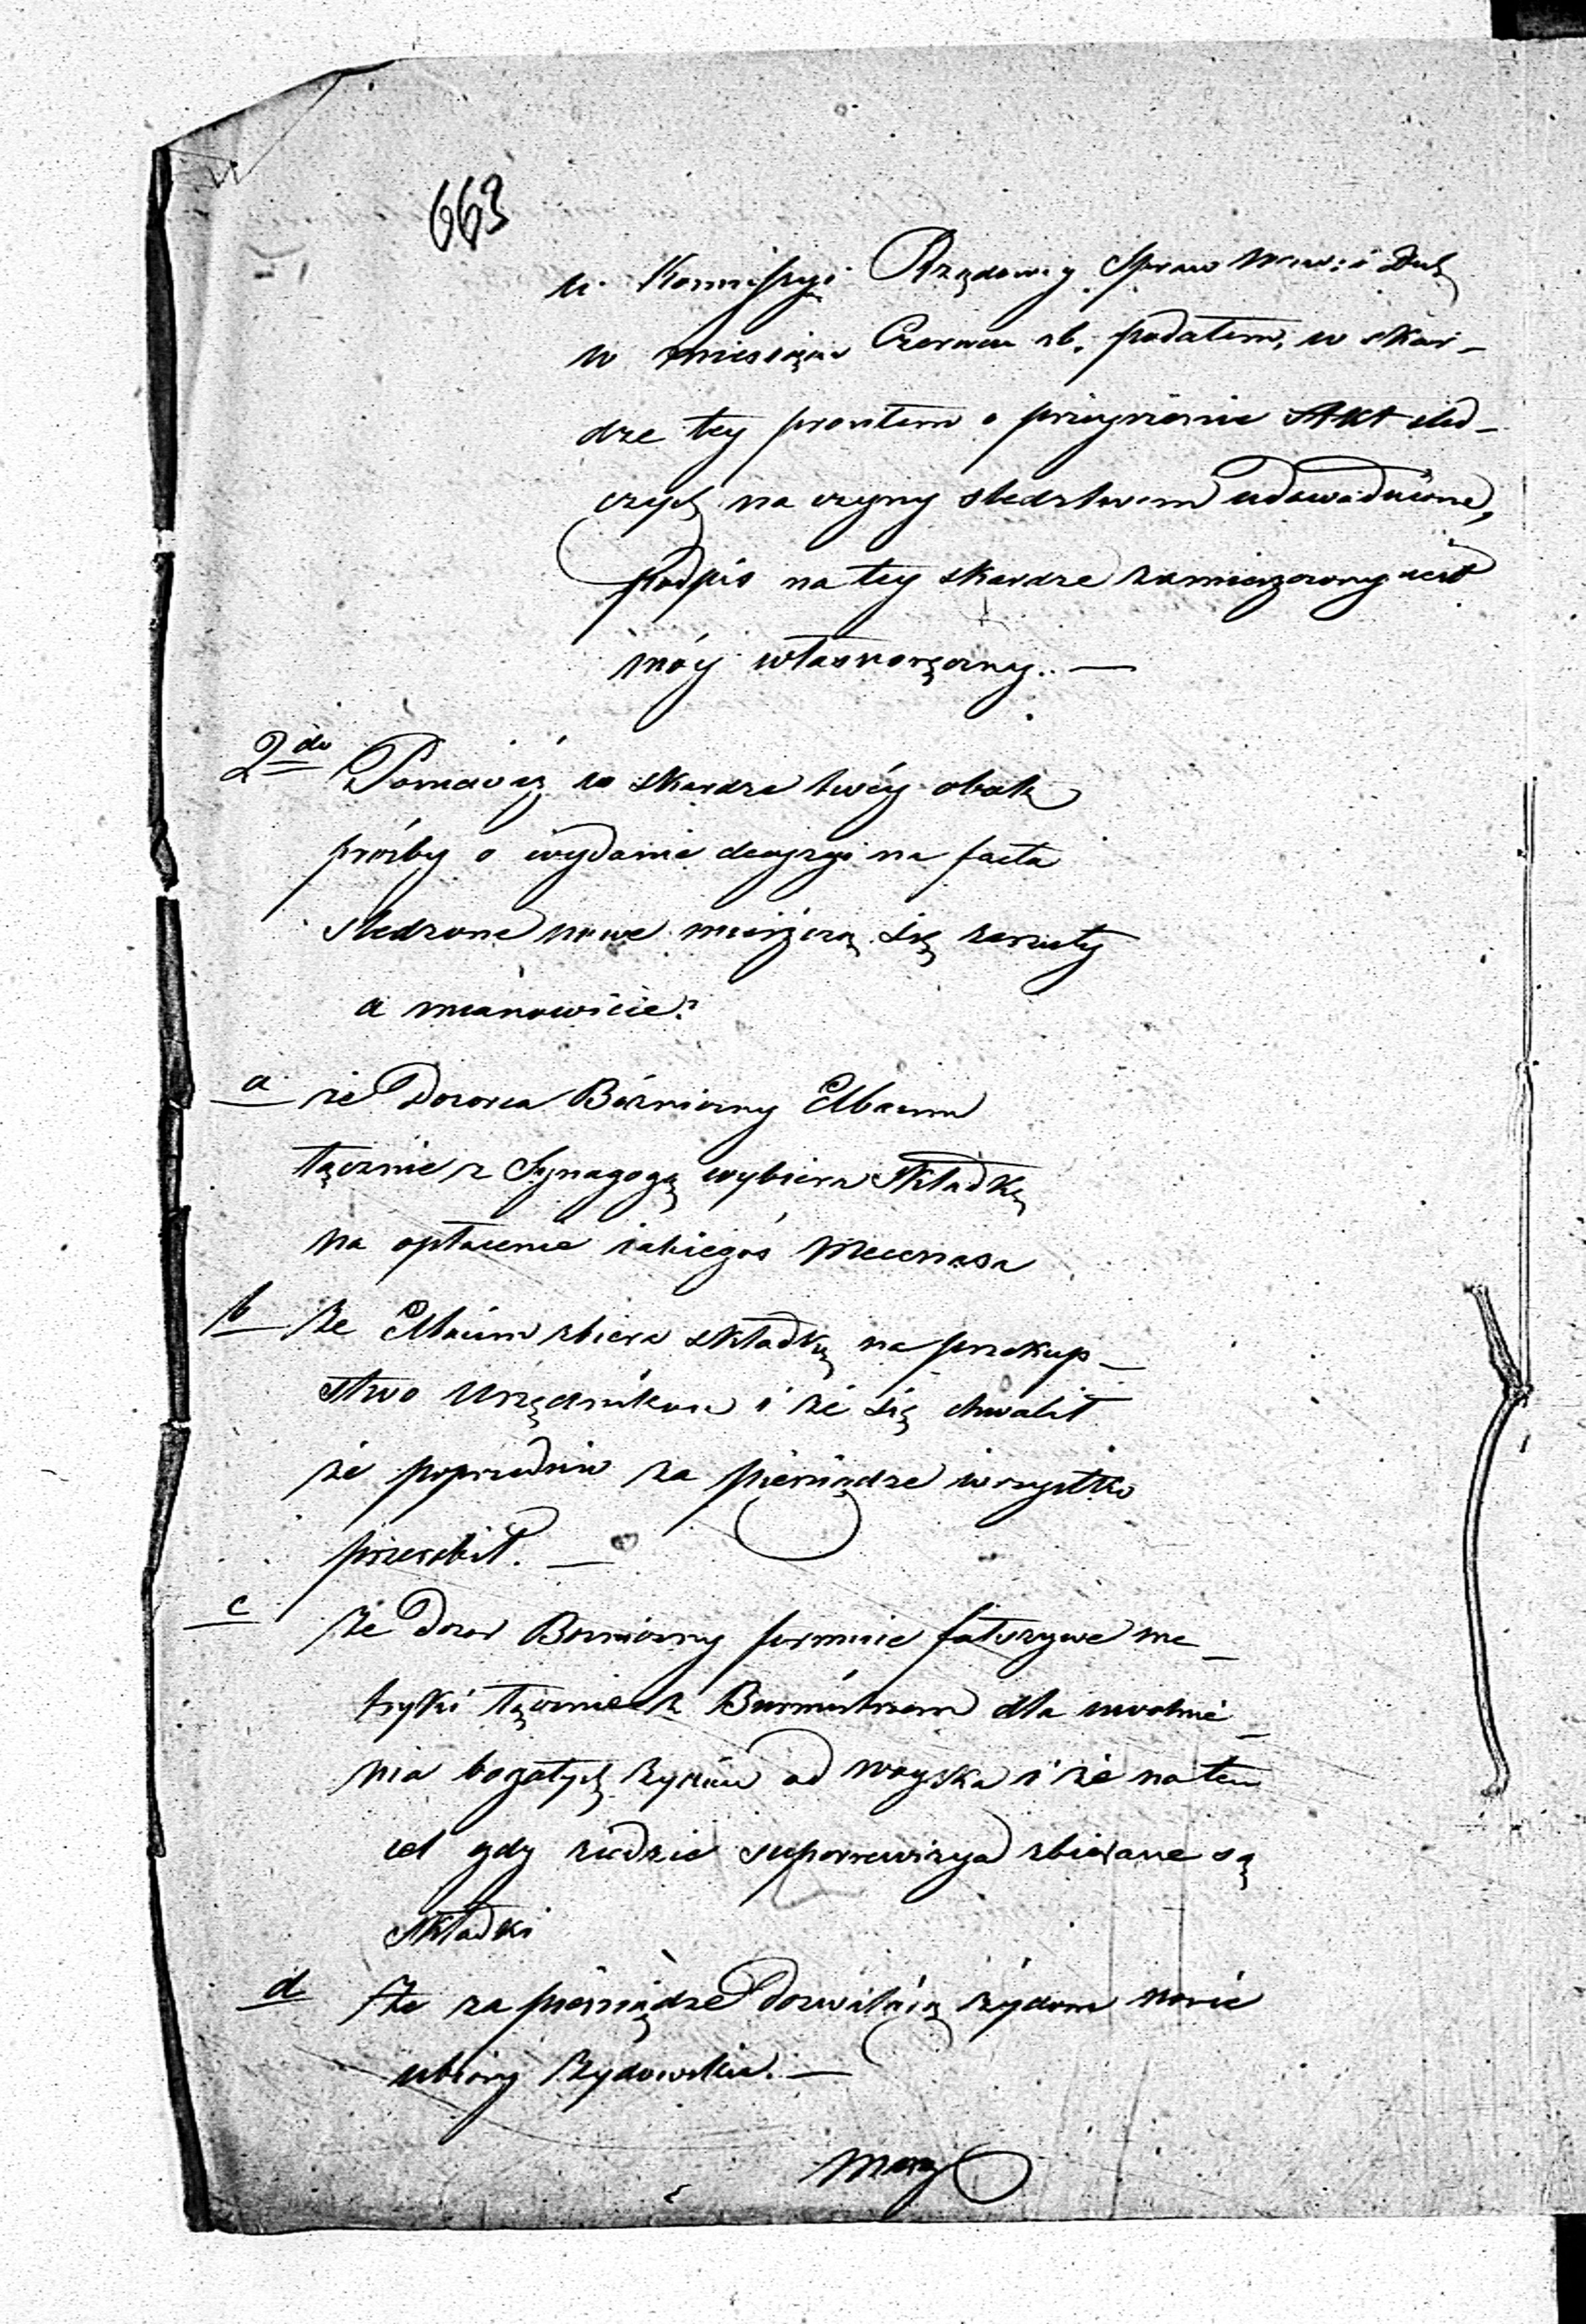 663
w Kommissyi Rządowey Spraw Wew: i Duch
w miesiącu Czerwcu rb. podałem, w skar-
dze tey prosiłem o przeyrzenie Akt śled-
czych na czyny śledztwem udowodnione,
Podpis na tey skardze zamieszczony iest
móy własnoręczny. —
2do Ponieważ w skardze twéy obok
prośby o wydanie decyzyi na facta
śledzone nowe mieszczą się zarzuty
a mianowicie:
a że Dozorca Bóżniczny Elbaum
łącznie z Synagogą wybiera Składkę
na opłacenie iakiegoś Mecenasa
b że Elbaum zbiera składkę na przekup-
stwo Urzędników i że się chwalił
że poprzednio za pieniądze wszystko
przerobił. —
c że Dozór Bożniczny formuie fałszywe me-
tryki łącznie z Burmistrzem dla uwolnie-
nia bogatych Żydów od woyska i że na ten
cel gdy ziedzie superrewizya zbierane są
Składki
d że za pieniądze Dozwalaią żydom nosić
ubiory Żydowskie. —